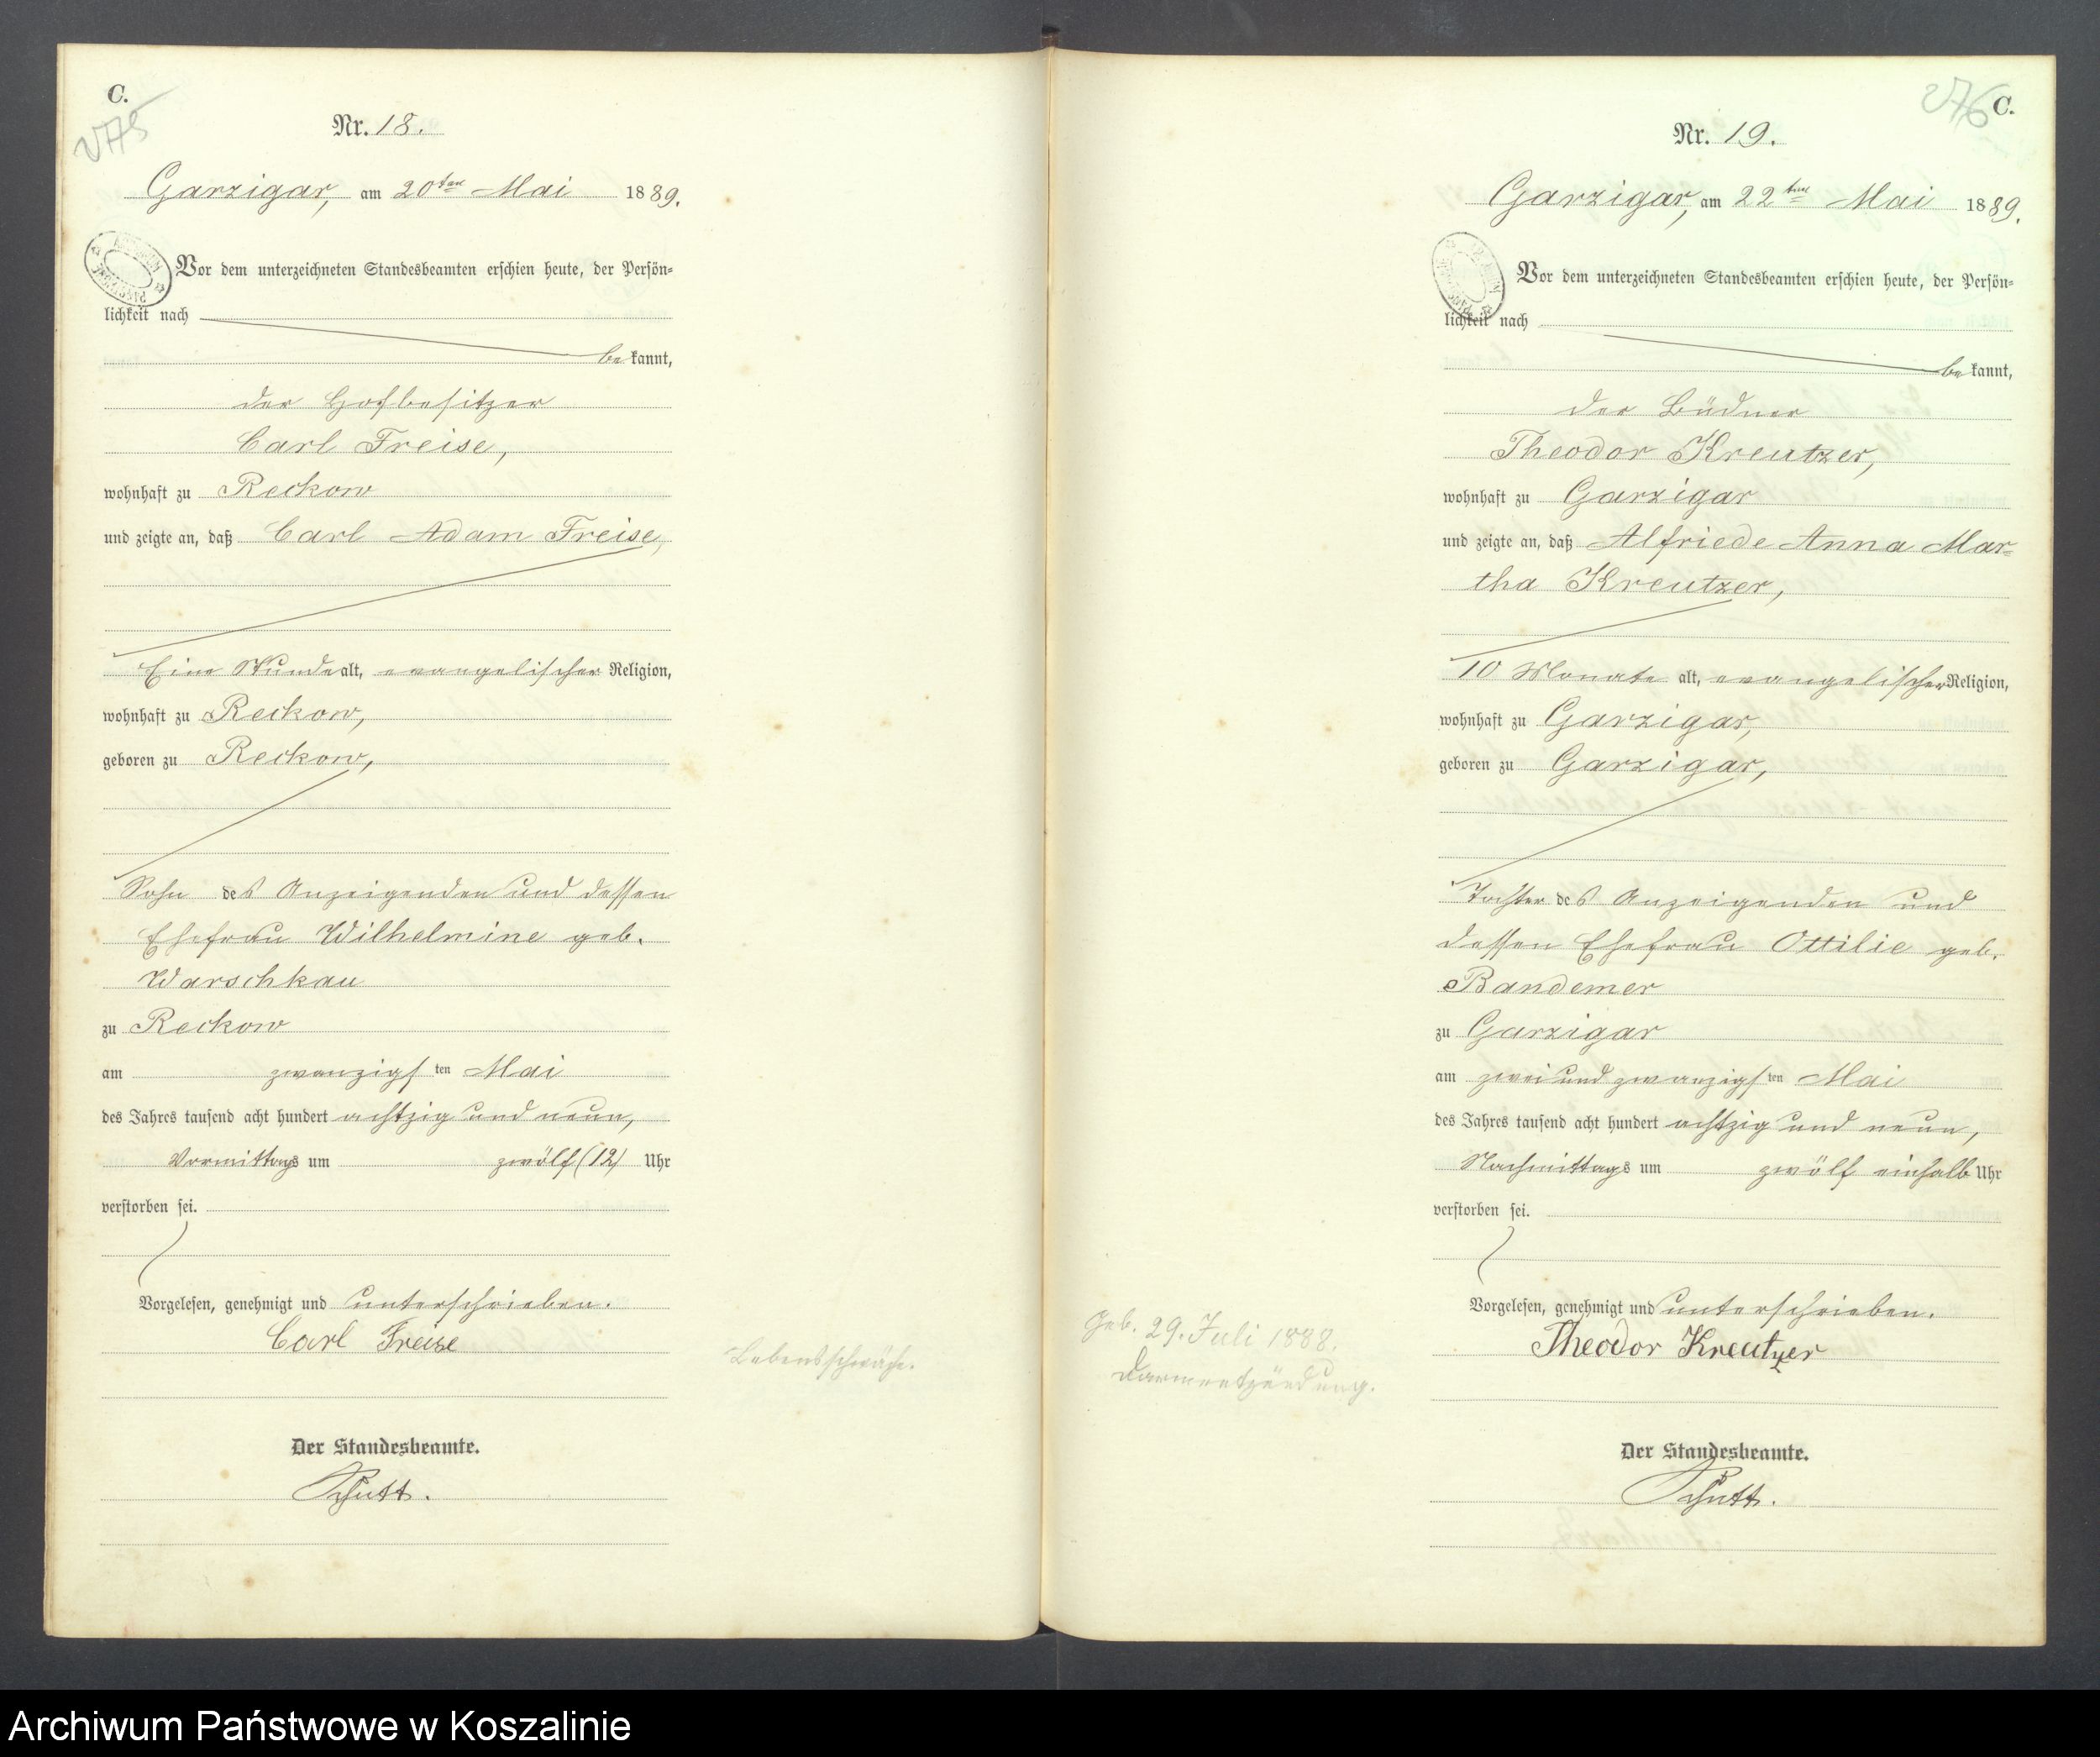 C.
275
Nr. 18.
Garzigar, am 20ten Mai 1889.
Vor dem unterzeichneten Standesbeamten erschien heute, der Persön=
lichkeit nach
bekannt,
der Hofbesitzer
Carl Freise,
wohnhaft zu Reckow
und zeigte an, daß Carl Adam Freise,
Eine Stunde alt, evangelischer Religion,
wohnhaft zu Reckow,
geboren zu Reckow,
Sohn des Anzeigenden und dessen
Ehefrau Wilhelmine geb.
Warschkau
zu Reckow
am zwanzigsten Mai
des Jahres tausend acht hundert achtzig und neun,
Vormittags um zwölf (12) Uhr
verstorben sei.
Vorgelesen, genehmigt und unterschrieben.
Carl Freise
Lebensschwäche.
Der Standesbeamte.
Schutt.
276 C.
Nr. 19.
Garzigar, am 22ten Mai 1889.
Vor dem unterzeichneten Standesbeamten erschien heute, der Persön=
lichkeit nach
bekannt,
der Büdner
Theodor Kreutzer,
wohnhaft zu Garzigar
und zeigte an, daß Alfriede Anna Mar=
tha Kreutzer,
10 Monate alt, evangelischer Religion,
wohnhaft zu Garzigar,
geboren zu Garzigar,
Tochter des Anzeigenden und
dessen Ehefrau Ottilie geb.
Bandemer
zu Garzigar
am zwei und zwanzigsten Mai
des Jahres tausend acht hundert achtzig und neun,
Nachmittags um zwölf einhalb Uhr
verstorben sei.
Vorgelesen, genehmigt und unterschrieben.
Theodor Kreutzer
Geb. 29. Juli 1888.
Darmentzündung.
Der Standesbeamte.
Schutt.
Archiwum Państwowe w Koszalinie